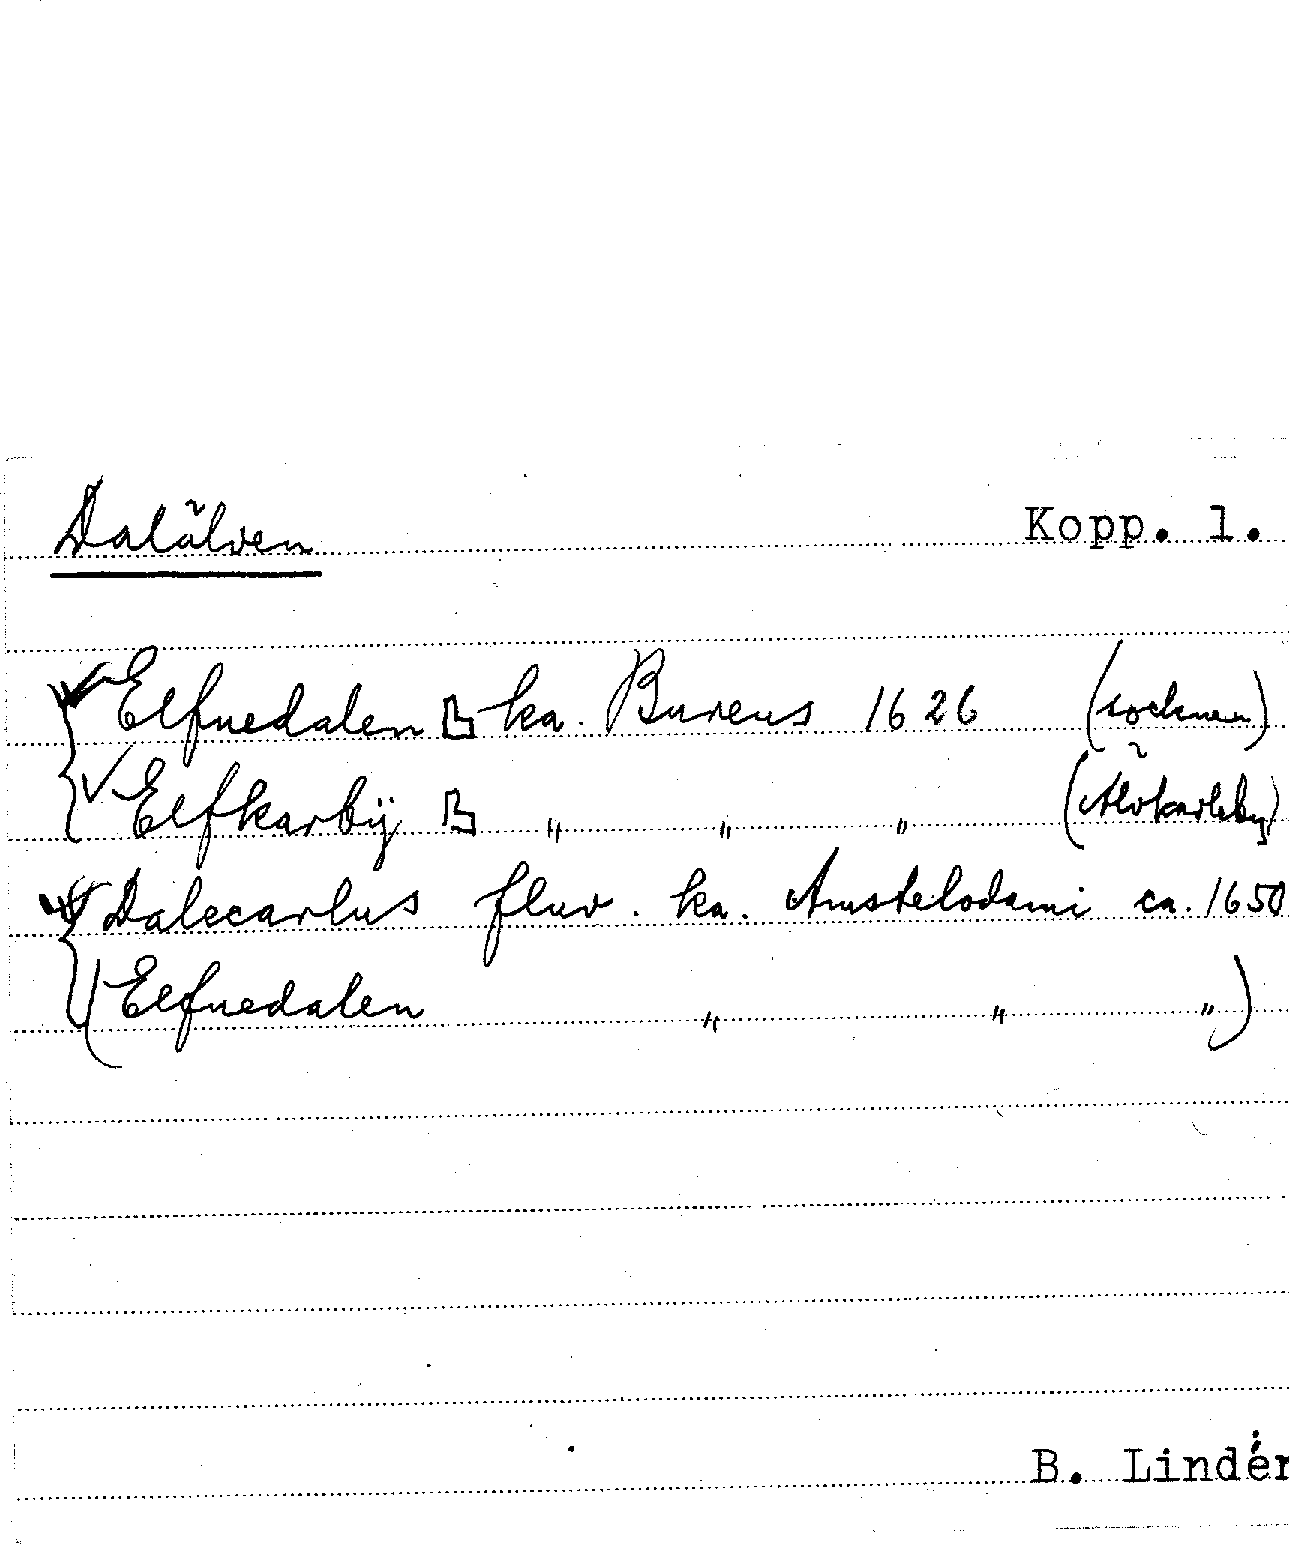 Dalälven Kopp. l.
Elfuedalen ka. Bureus 1626 (socknen)
Elfkarbÿ " " " (Älvkarleby)
Dalecarlus fluv. ka. Amstelodami ca. 1650
(Elfuedalen " " ")
B. Lindén